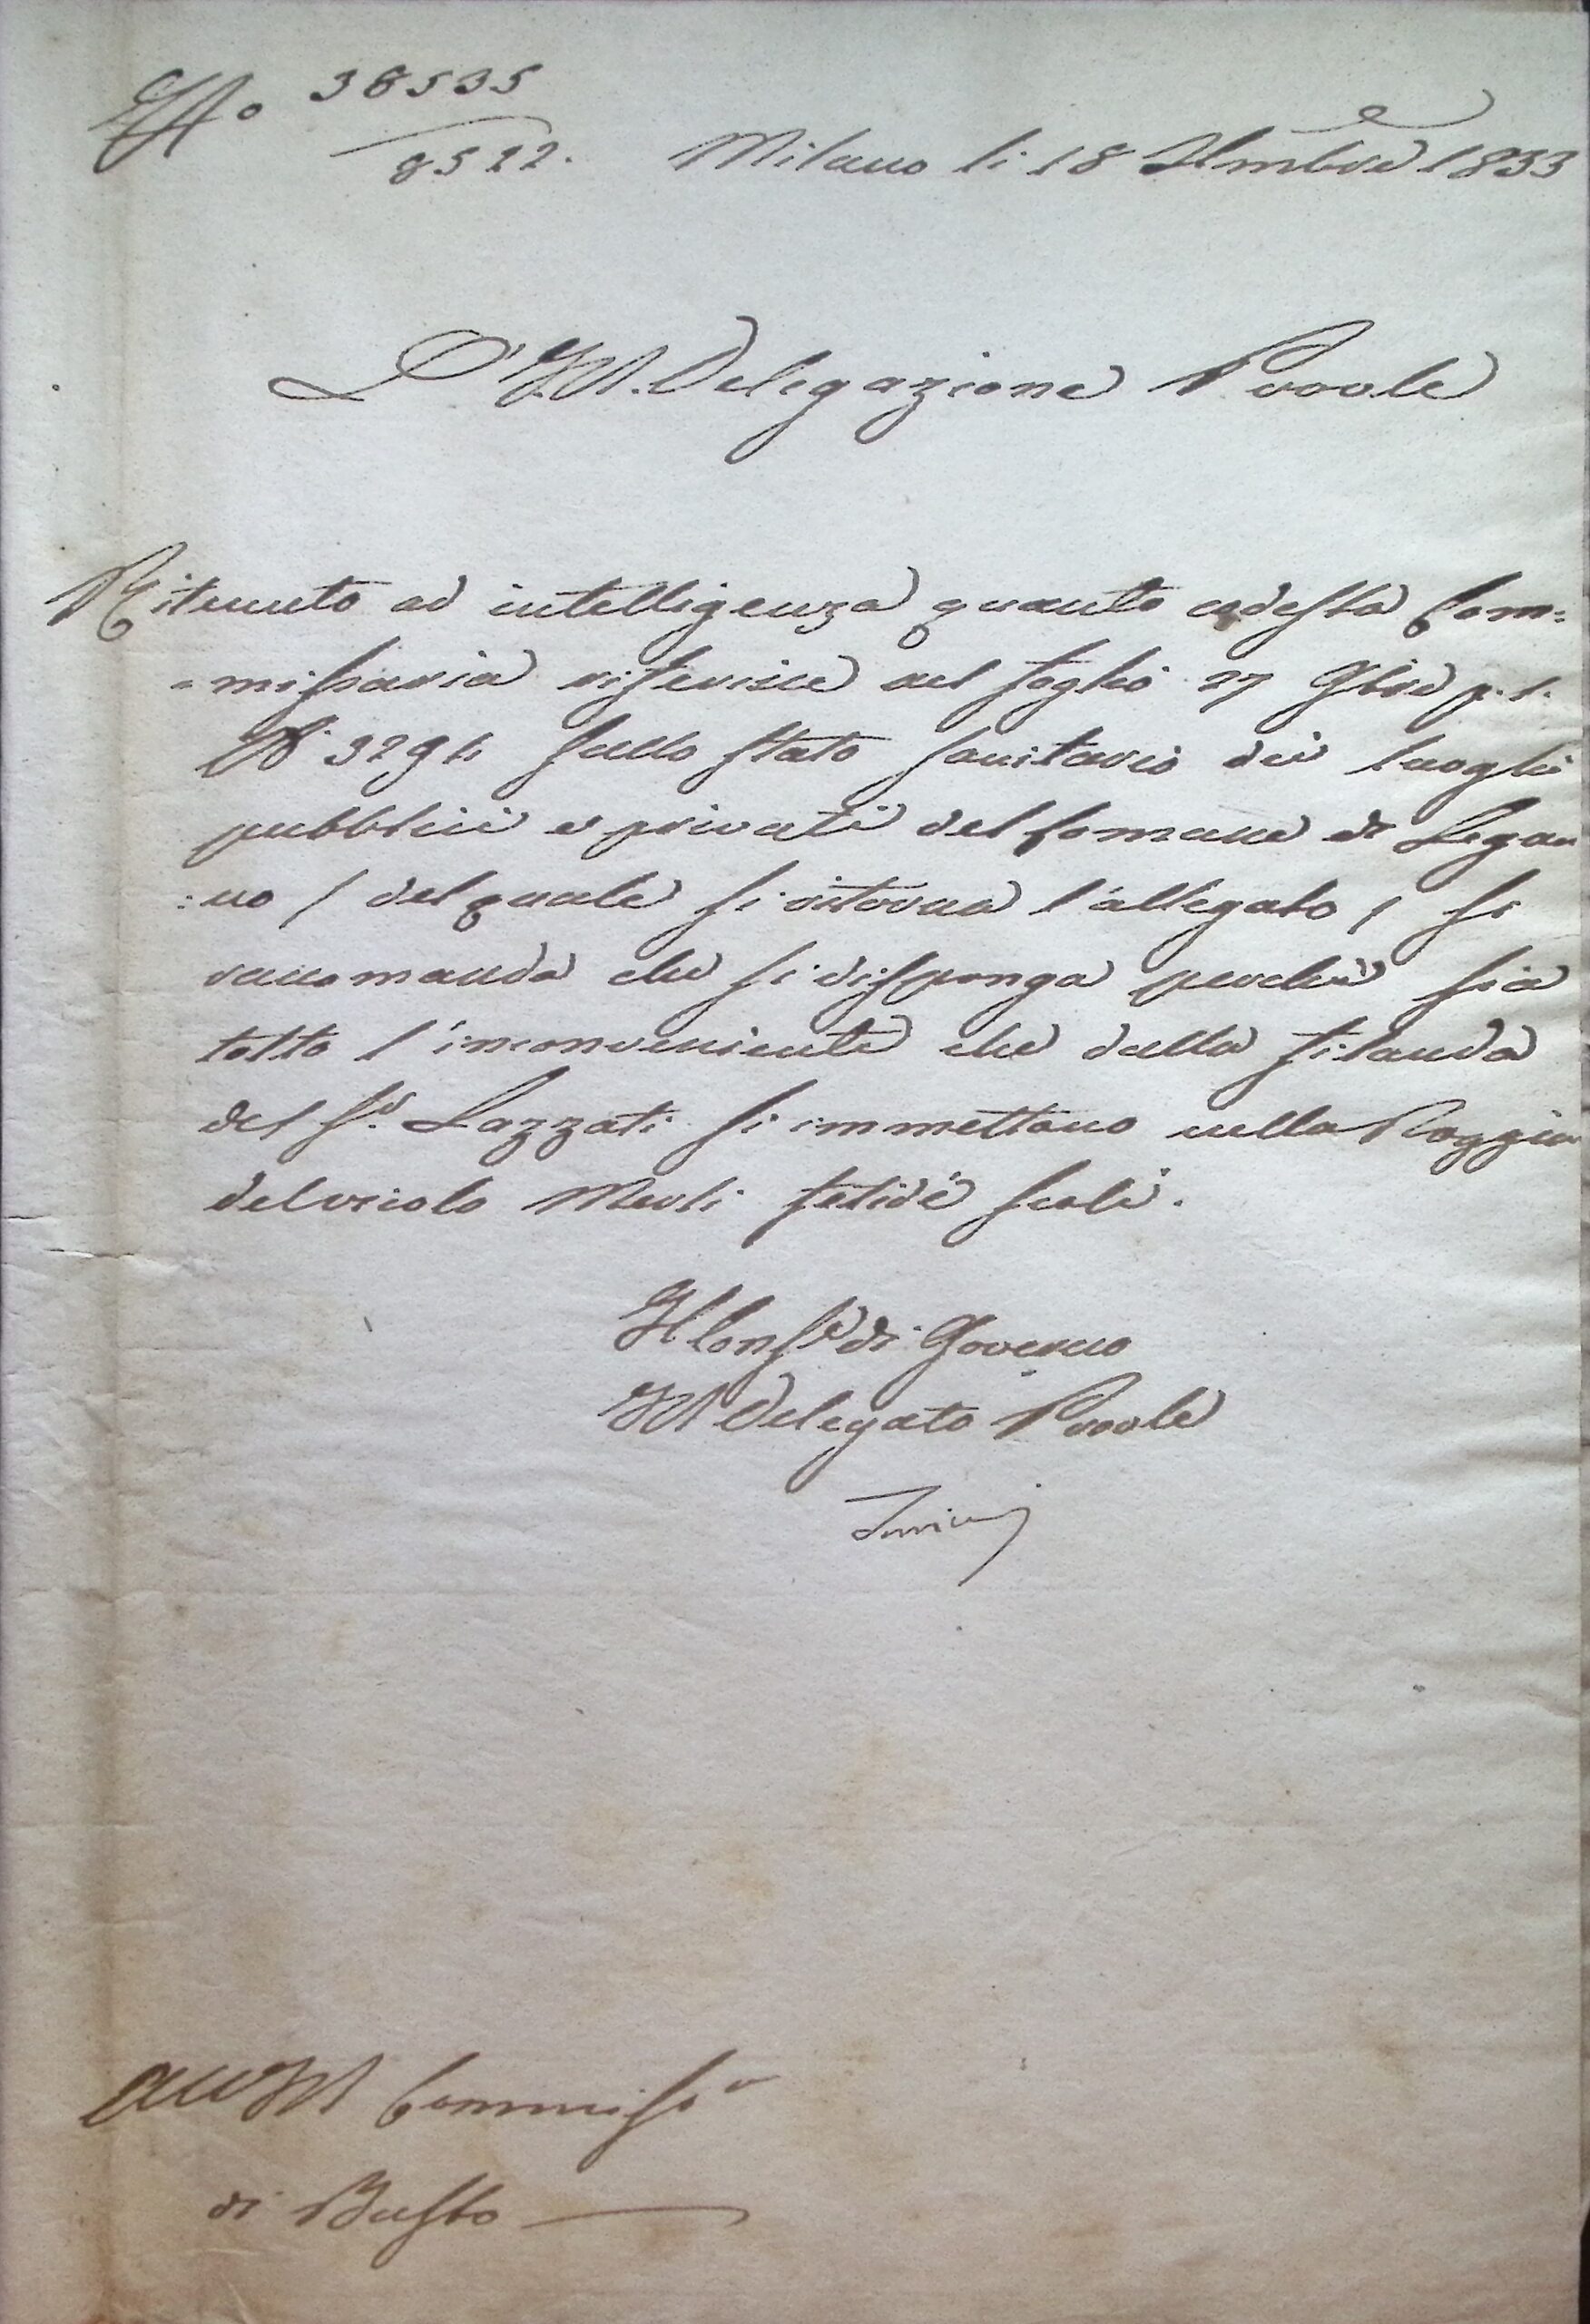 N° 38535
8522. Milano li 18 Xmbre 1833
L'I.R. Delegazione Provle
Ritenuto ad intelligenza quanto codesta Com=
=missaria riferisce nel foglio 27 9bre p.p.
N° 3294 sullo stato sanitario dei luoghi
pubblici e privati del Comune di Legna
:no / del quale si ritorna l'allegato / si
raccomanda che si disponga perchè sia
tolto l'inconveniente che dalla filanda
del Sr. Lazzati si immettano nella Roggia
del vicolo fetidi scoli.
Il Consre di Governo
I.R. Delegato Provle
All'I.R. Commisso
di Busto